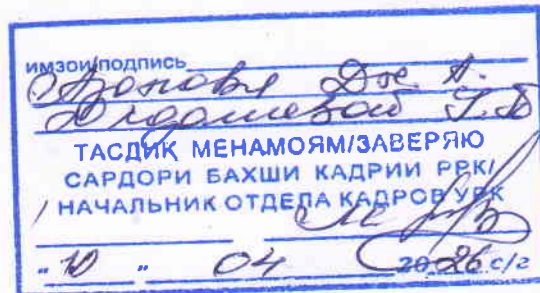 ИМЗОИ/ПОДПИСЬ
Дж. А.
ТАСДИҚ МЕНАМОЯМ/ЗАВЕРЯЮ
САРДОРИ БАХШИ КАДРИИ РРК/
НАЧАЛЬНИК ОТДЕЛА КАДРОВ УРК
"10" 04 2026 с/г